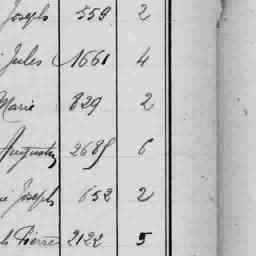 Joseph 559 2
Jules 1661 4
Marie 829 2
Augustin 2685 6
Joseph 652 2
Pierre 2122 5